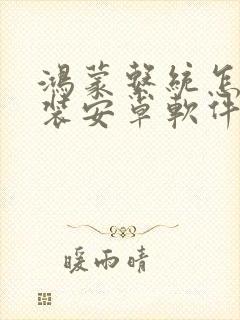 鴻蒙繫統怎
裝安卓軟件
暖雨晴